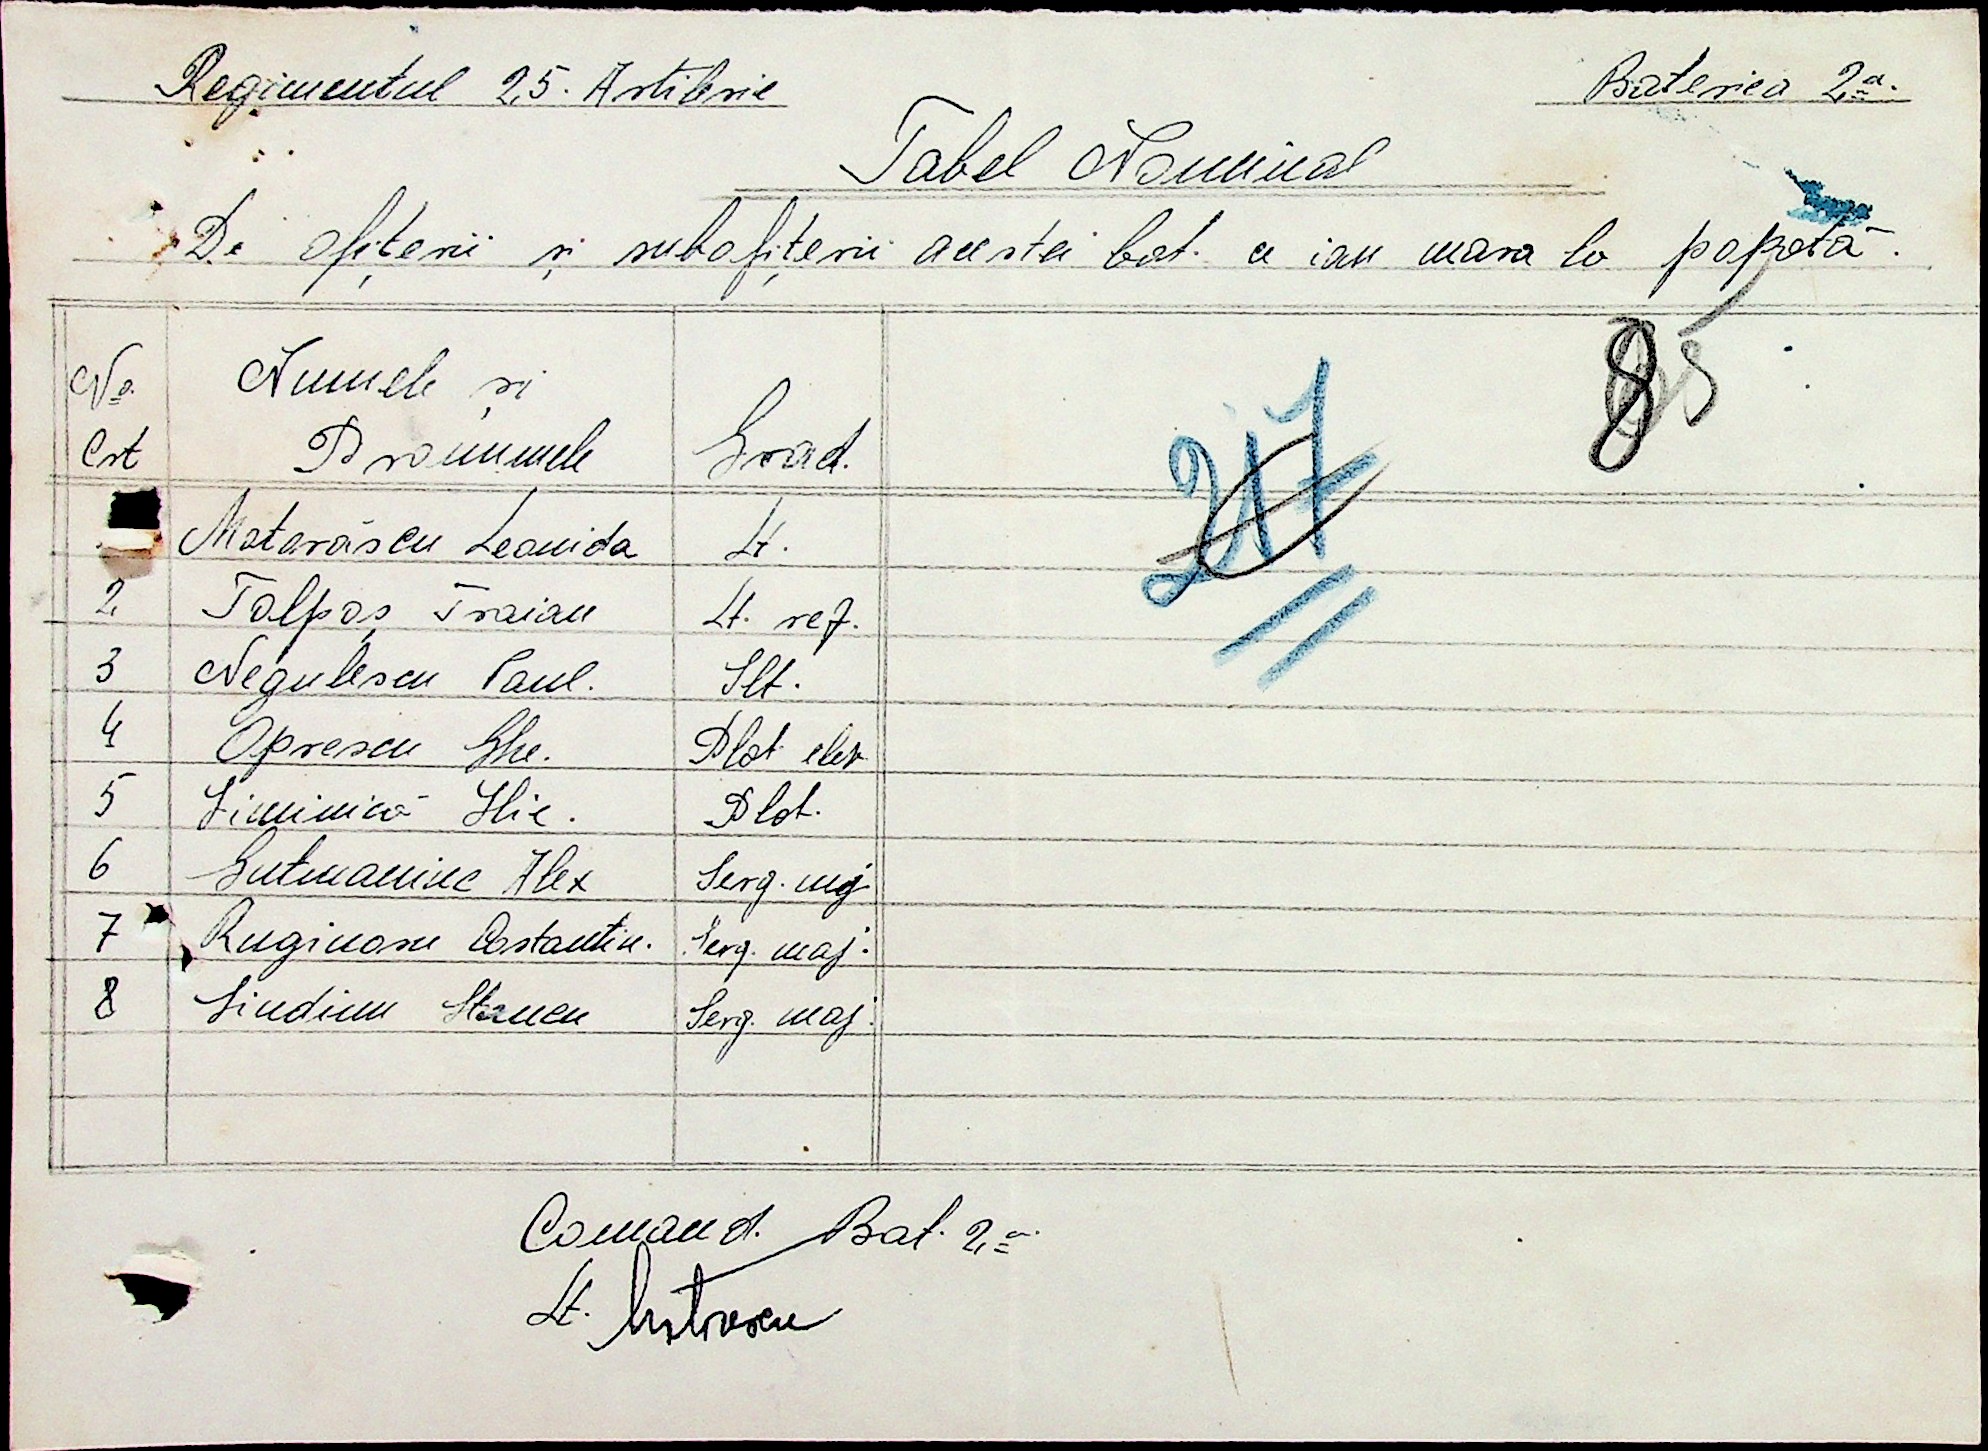 Regimentul 25. Artilerie
Bateriea 2a.
Tabel Nominal
De ofițerii și subofițerii acestei bat. ce iau masa la popotă.
No. Crt
Numele și Pronumele
Grad.
85
217
Matarăscu Leonida Lt.
2 Talpaș Traian Lt. rez.
3 Negulescu Paul. Slt.
4 Oprescu Ghe. Plot elev
5 Siminică Ilie. Plot.
6 Gutmaninc Alex Serg. mj
7 Ruginosu Costantin. Serg. maj.
8 Sindinu Stancu Serg. maj.
Comand. Bat. 2a.
Lt.